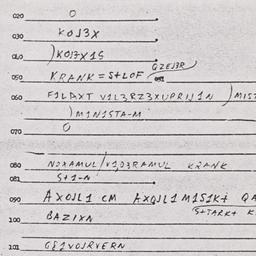 020 O
030 KOJ3X
040 )KOJ3X1S
GZEJ3R
050 KRANK=S+LOF
060 F1LDXT V1L3,RZ3XUPRIJ1N )MIS
)M1N1STA-M
070 O
080 NOXAMUL/V1,O3RAMUL KRANK
081 S+1-N
090 AXOJL1 CM AXOJL1M1S1K+ QA
(S+TARK+ K
100 BAZIXN
101 GE1VOJRVERN